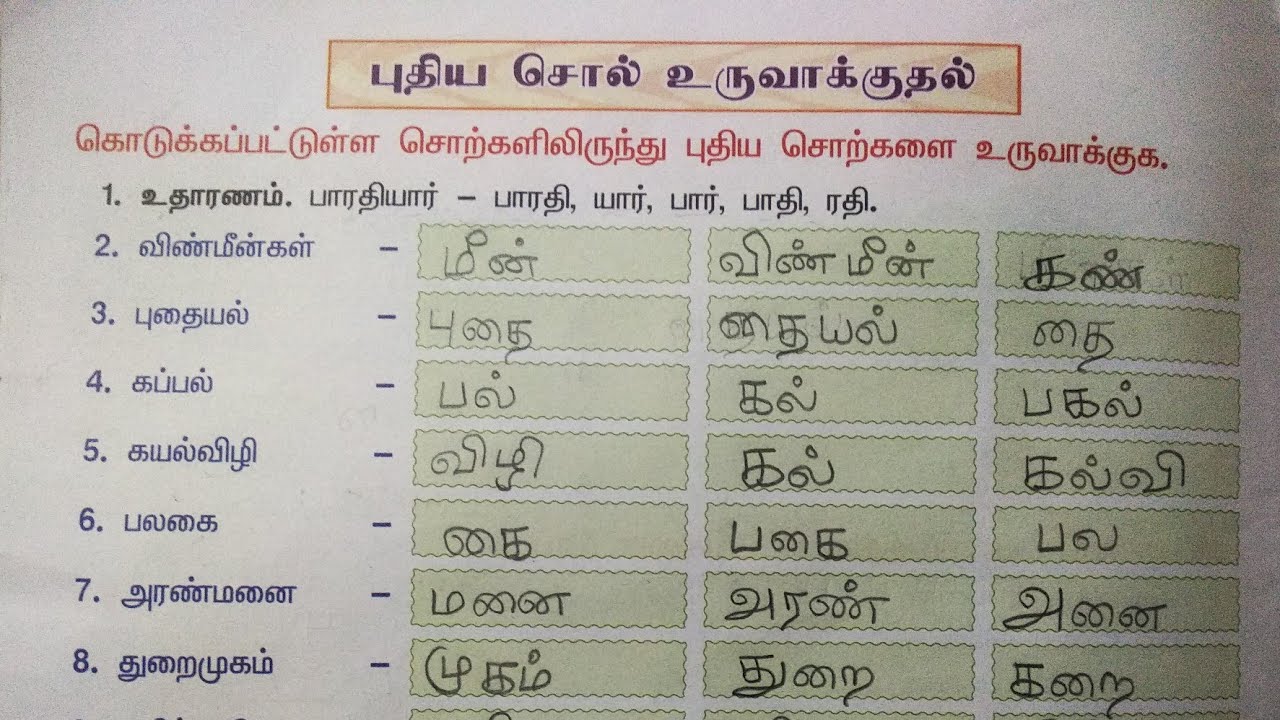 புதிய சொல் உருவாக்குதல்
கொடுக்கப்பட்டுள்ள சொற்களிலிருந்து புதிய சொற்களை உருவாக்குக.
1. உதாரணம். பாரதியார் – பாரதி, யார், பார், பாதி, ரதி.
2. விண்மீன்கள் – மீன் விண்மீன் கண்
3. புதையல் – புதை தையல் தை
4. கப்பல் – பல் கல் பகல்
5. கயல்விழி – விழி கல் கல்வி
6. பலகை – கை பகை பல
7. அரண்மனை – மனை அரண் அனை
8. துறைமுகம் – முகம் துறை கறை